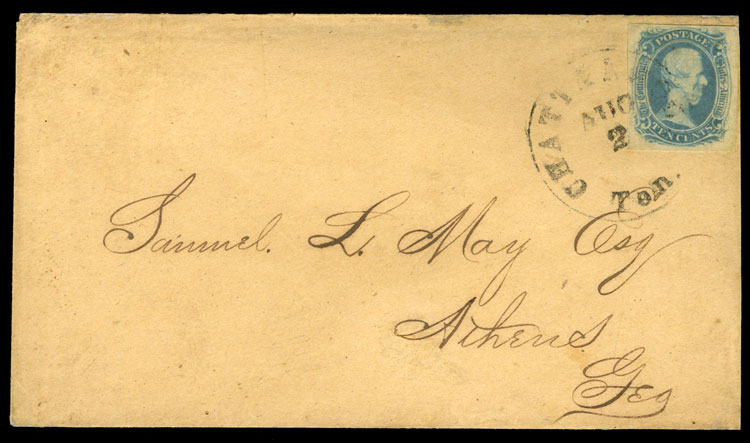 POSTAGE
TEN CENTS
AUG
2
Ten.
Samuel. L. May Esq
Athens
Geo